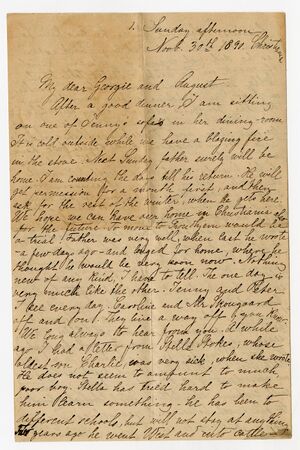 1.
Sunday afternoon
Novb. 30th 1890. Christiania
My dear Georgie and August
After a good dinner I am sitting
on one of Jenny's sofas in her dining-room
It is cold outside while we have a blazing fire
in the stove. Next Sunday father surely will be
home I am counting the days till his return. He will
get permission for a month first, and then
ask for the rest of the winter, when he gets here.
We hope we can have our home in Christiania also
for the future. To move to would be
a trial. Father was very well, when last he wrote
a few days ago and longed for home, where he
thought he would be very soon now. Nothing
new of any kind, I have to tell. The one day is
very much like the other. Jenny and Peter
I see every day. Caroline and Mr.
off and on. They live a way off you know
We long always to hear from you. A while
ago I had a letter from Stella Stokes, whose
oldest son Charlie, was very sick, when she wrote
He does not seem to amount to much
poor boy. Stella has tried hard to make
him learn something. he has been to
different schools, but will not stay at anything
two years ago he went West and into cattle